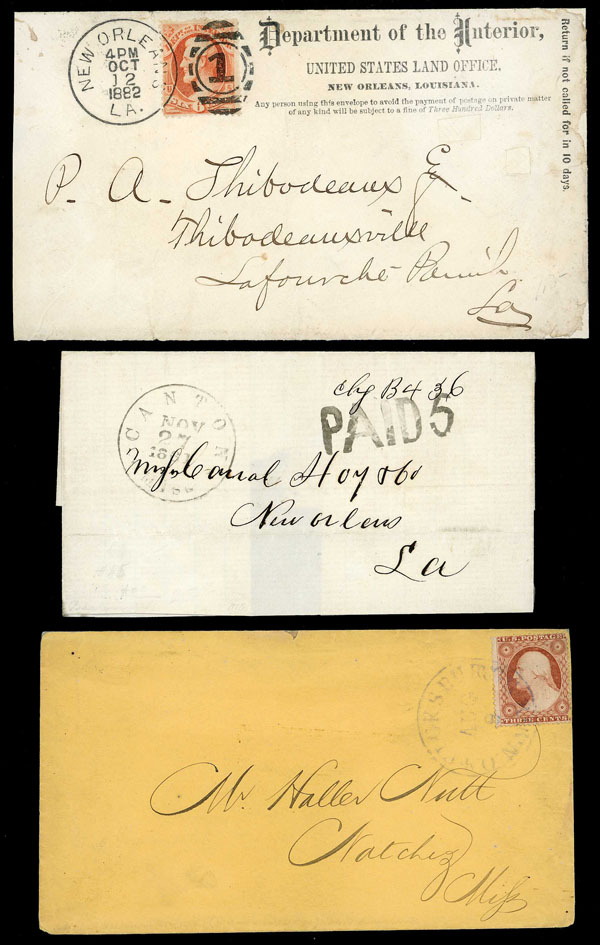 NEW ORLEANS
4PM
OCT
12
1882
LA.
1
Department of the Interior,
UNITED STATES LAND OFFICE,
NEW ORLEANS, LOUISIANA.
Any person using this envelope to avoid the payment of postage on private matter
of any kind will be subject to a fine of Three Hundred Dollars.
Return if not called for in 10 days.
P. A. Thibodeaux
Thibodeauxville
Lafourche
La
CANTON
NOV
27
PAID 5
Canal
New orlens
La
U.S. POSTAGE
THREE CENTS
Mr Haller Nutt
Natchez
Miss